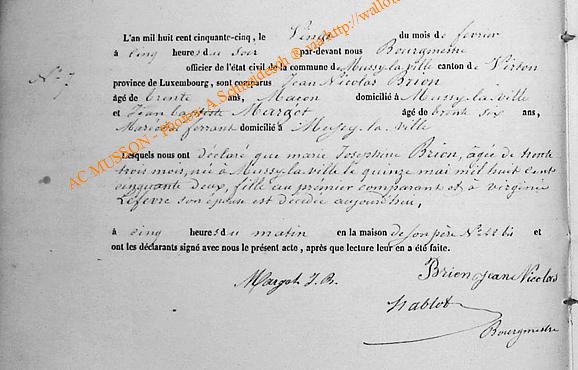 L'an mil huit cent cinquante-cinq, le Vingt du mois de février
à cinq heures du soir par-devant nous Bourgmestre
officier de l'état civil de la commune de Mussy-la-ville canton de Virton
N° 7
province de Luxembourg, sont comparus Jean Nicolas Brion
âgé de trente ans, Maçon domicilié à Mussy-la-ville
et Jean Baptiste Margot âgé de trente six ans,
Marechal ferrant domicilié à Mussy-la-ville
Lesquels nous ont déclaré que marie Josephine Brion, âgée de trente
trois mois, né à Mussy-la-ville le quinze mai mil huit cent
cinquante deux, fille au premier comparant et à virginie
Lefevre son épouse est décédée aujourd'hui,
à cinq heures du matin en la maison de son père N° 42 bis et
ont les déclarants signé avec nous le présent acte, après que lecture leur en a été faite.
Margot J. B. Brion jean Nicolas
Bourgmestre
AC MUSSON - Photos A.Schmidt.esch @